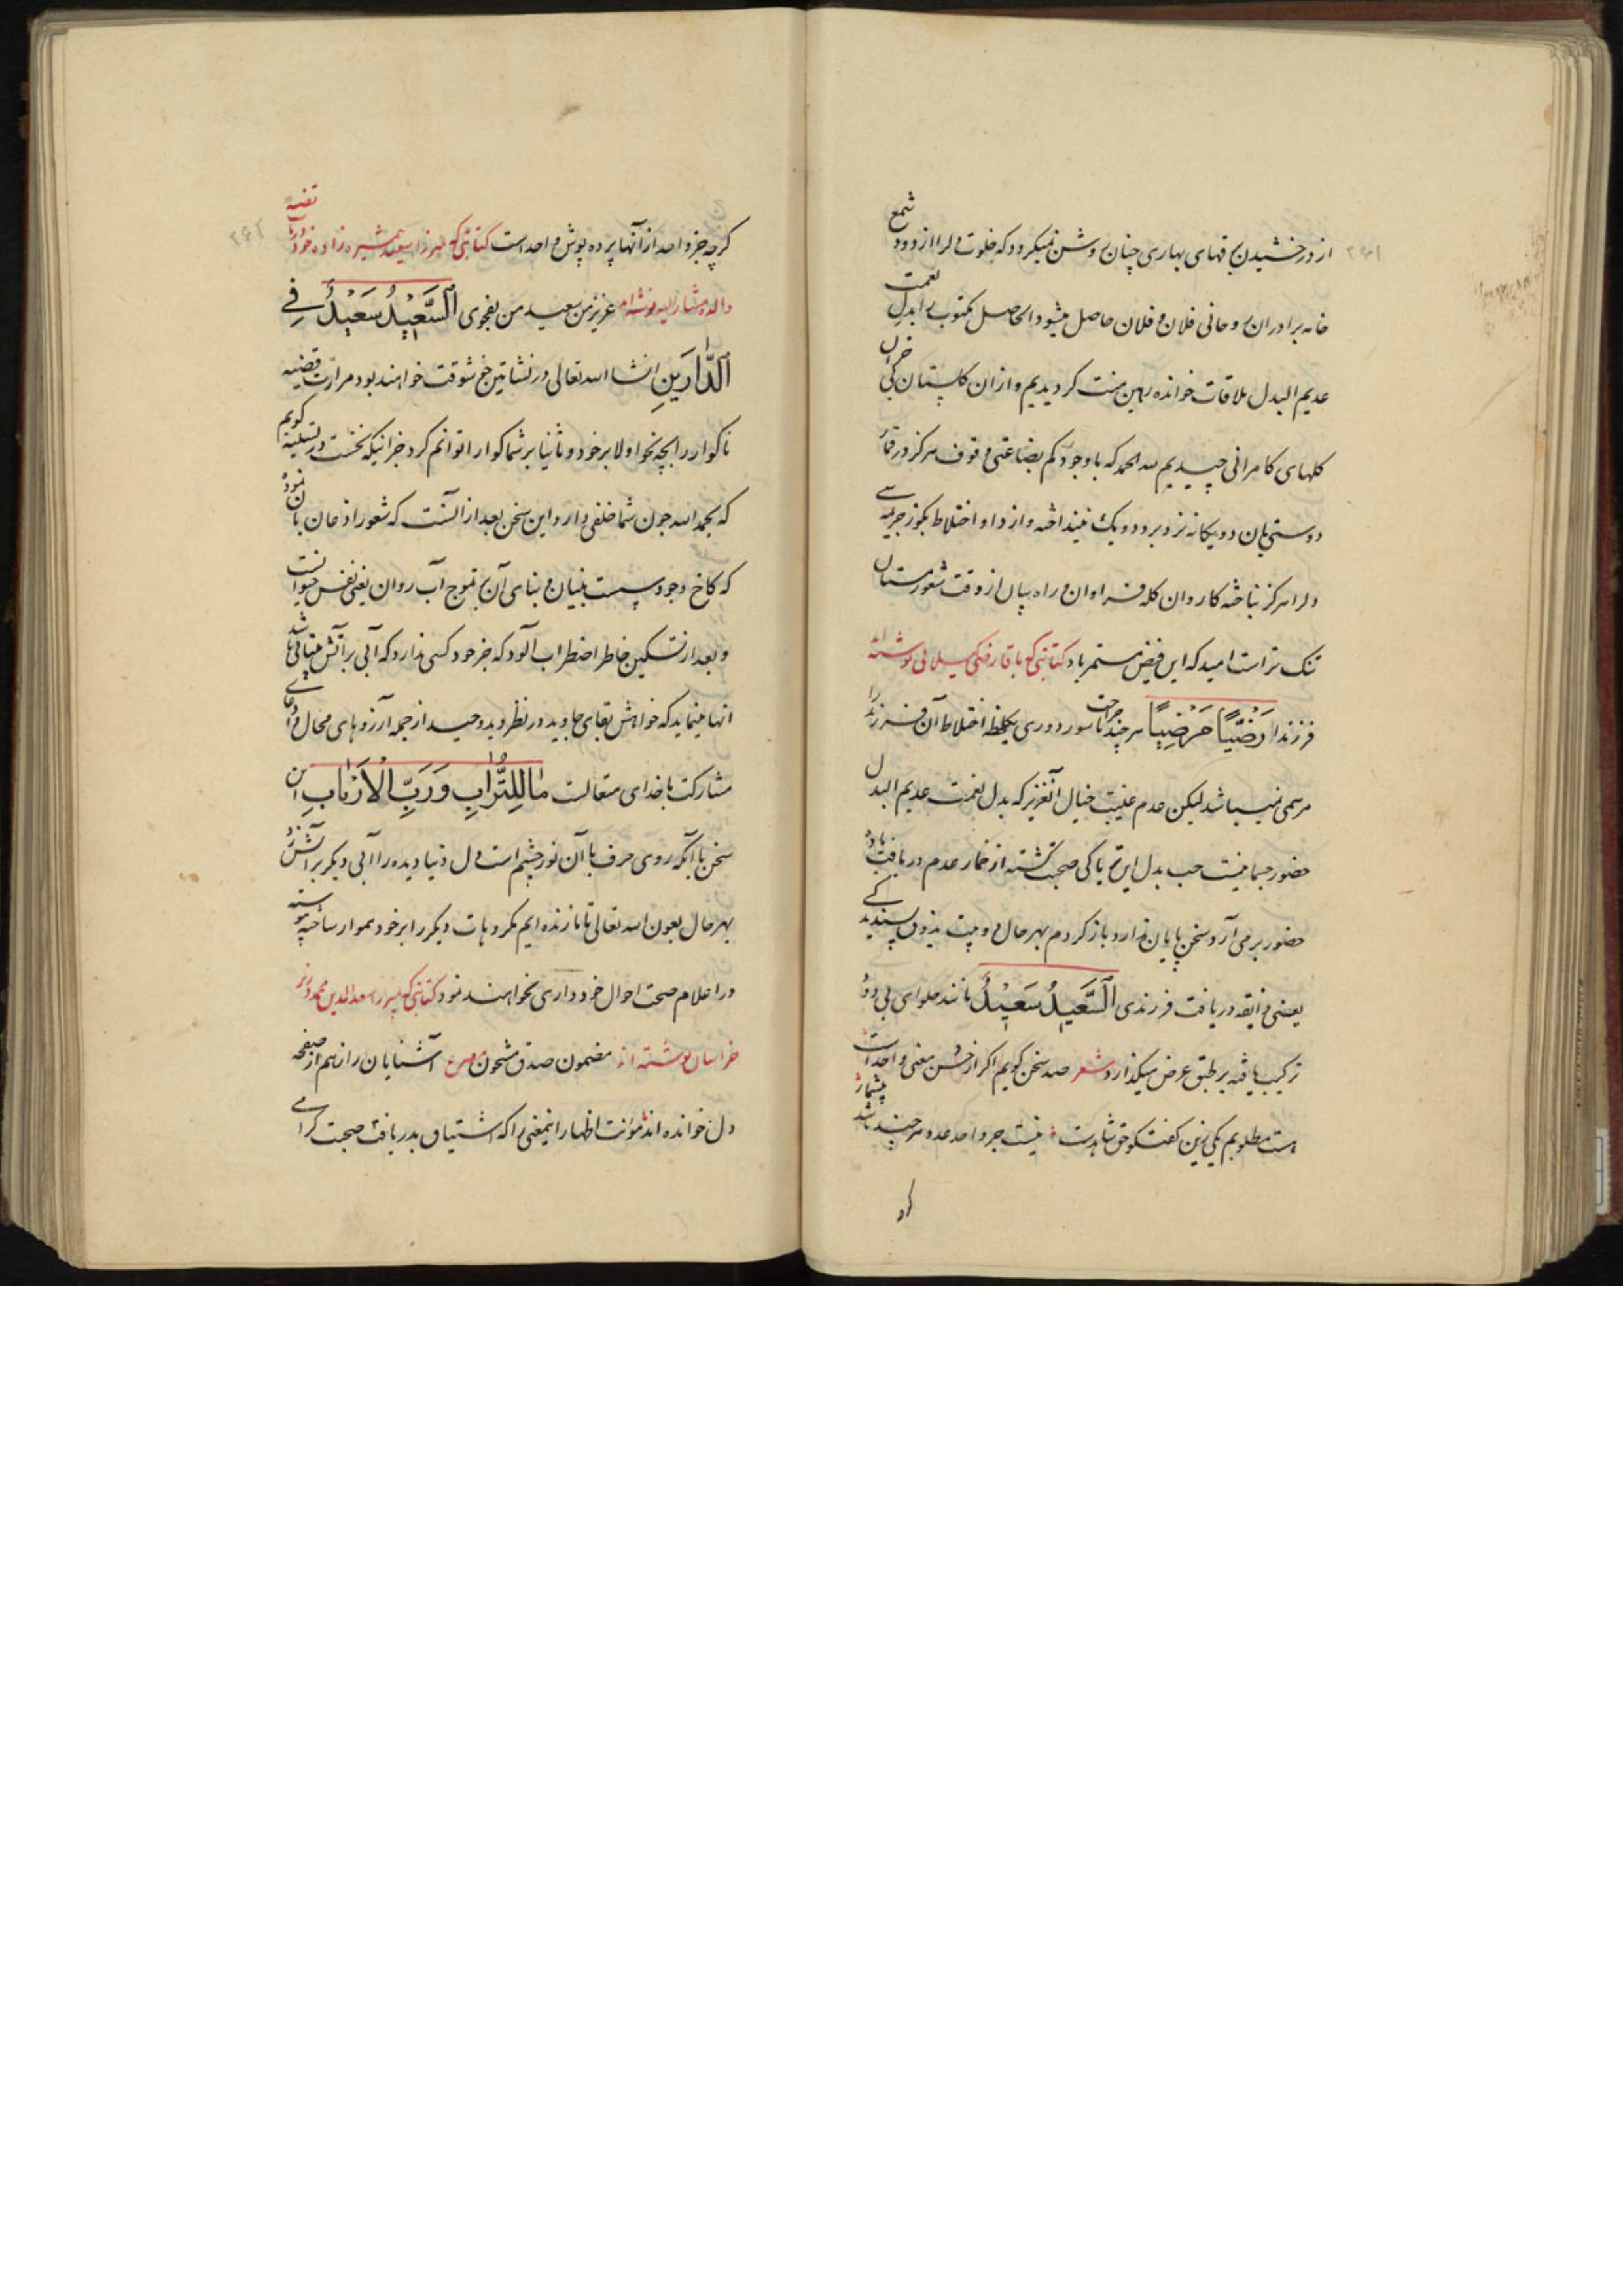 ۲۹۱
از درخشیدن برقهای بهاری چنان روشن نمیکرود که خلوت دلرا از دود شمع
خانه برادران روحانی فلان و فلان حاصل میشود الحاصل مکتوب را بدل نعمت
عدیم البدل ملاقات خوانده رهین منت کردیدیم و ازان کلستان بی خزان
کلهای کامرانی چیدیم لله الحمد که باوجود کم بضاعتی وقوف هرکز در قمار
دوستی بان دو یکانه نزد برد دو یک نینداخته و از داو اختلاط بجوز جر بی
دلرا هرکز نباخته کاروان کله فراوان و راه بیان از وقت شعور مستان
تنک تر است امید که این فیض مستمر باد کتابتی که باقا رفیکی کیلانی نوشته اند
فرزندا رَضِیًّا مَرْضِیًّا هر چند ناسور دوری یکلحظه اختلاط آن فرزند را
مرهمی نمیباشد لیکن عدم غیبت خیال آنعزیز که بدل نعمت عدیم البدل
حضور جسمانیست حب بدل این تریاکی صحبت کشته از خمار عدم دریافت باده
حضور برمی آرد سخن پایان ندارد باز کردم بهر حال دو بیت بذوق پسندیدکی
یعنی ذایقه دریافت فرزندی اَلسَّعِیدُ سَعِیْدُ مانند حلوای بی دود
ترکیب یافته بر طبق عرض میکذارد شعر صد سخن کویم اکر از حسن معنی واحد است
هست مطلوبم یکی زین کفتکو حق شاهدست نیست جز واحد عدد هر چند باشد بیشمار
کر
۲۹۲
کرچه جز واحد از آنها پرده پوش واحد است کتابتی که بمیرزا سعید همشیره زاده خود در باب قضیه
والده مشار الیه نوشته اند عزیز من سعید من بفحوی اَلسَّعِیْدُ سَعِیْدٌ فِی
اَلدَّارَینِ انشا الله تعالی در نشاتین خوشوقت خواهند بود مرارت قضیه
ناکوار را بچه نحو اولا بر خود و ثانیا بر شما کوارا توانم کرد جز اینکه نخست در تسلیه کویم
که بحمد الله چون شما خلفی دارد این سخن بعد از آنست که شعور اذعان بآن نموده
که کاخ وجود پست بنیان و بنای آن بتموج آب روان یعنی نفس حیوانست
و بعد از تسکین خاطر اضطراب آلود که جز خود کسی ندارد که آبی بر آتش بیتابیها باشد
انها مینماید که خواهش بقای جاوید در نظر دید وحید از جمله آرزوهای محال و ادعای
مشارکت با خدای متعالست مَا لِلتُّرَابِ وَ رَبِّ الْاَرْبَابِ این
سخن با آنکه روی حرف با آن نور چشم است دل دنیا دیده را آبی دیکر بر آتش زد
بهر حال بعون الله تعالی تا ما زنده ایم مکروهات دیکر را بر خود هموار ساخته پیوسته
در اعلام صحت احوال خود داری نخواهند نمود کتابتی که بمیرزا سعد الدین محمد وزیر
خراسان نوشته اند مضمون صدق مشحون مصرع آشنایان راز هم از صفحه
دل خوانده اند مؤنت اظهار اینمعنی را که اشتیاق بدریافت صحبت کرامی